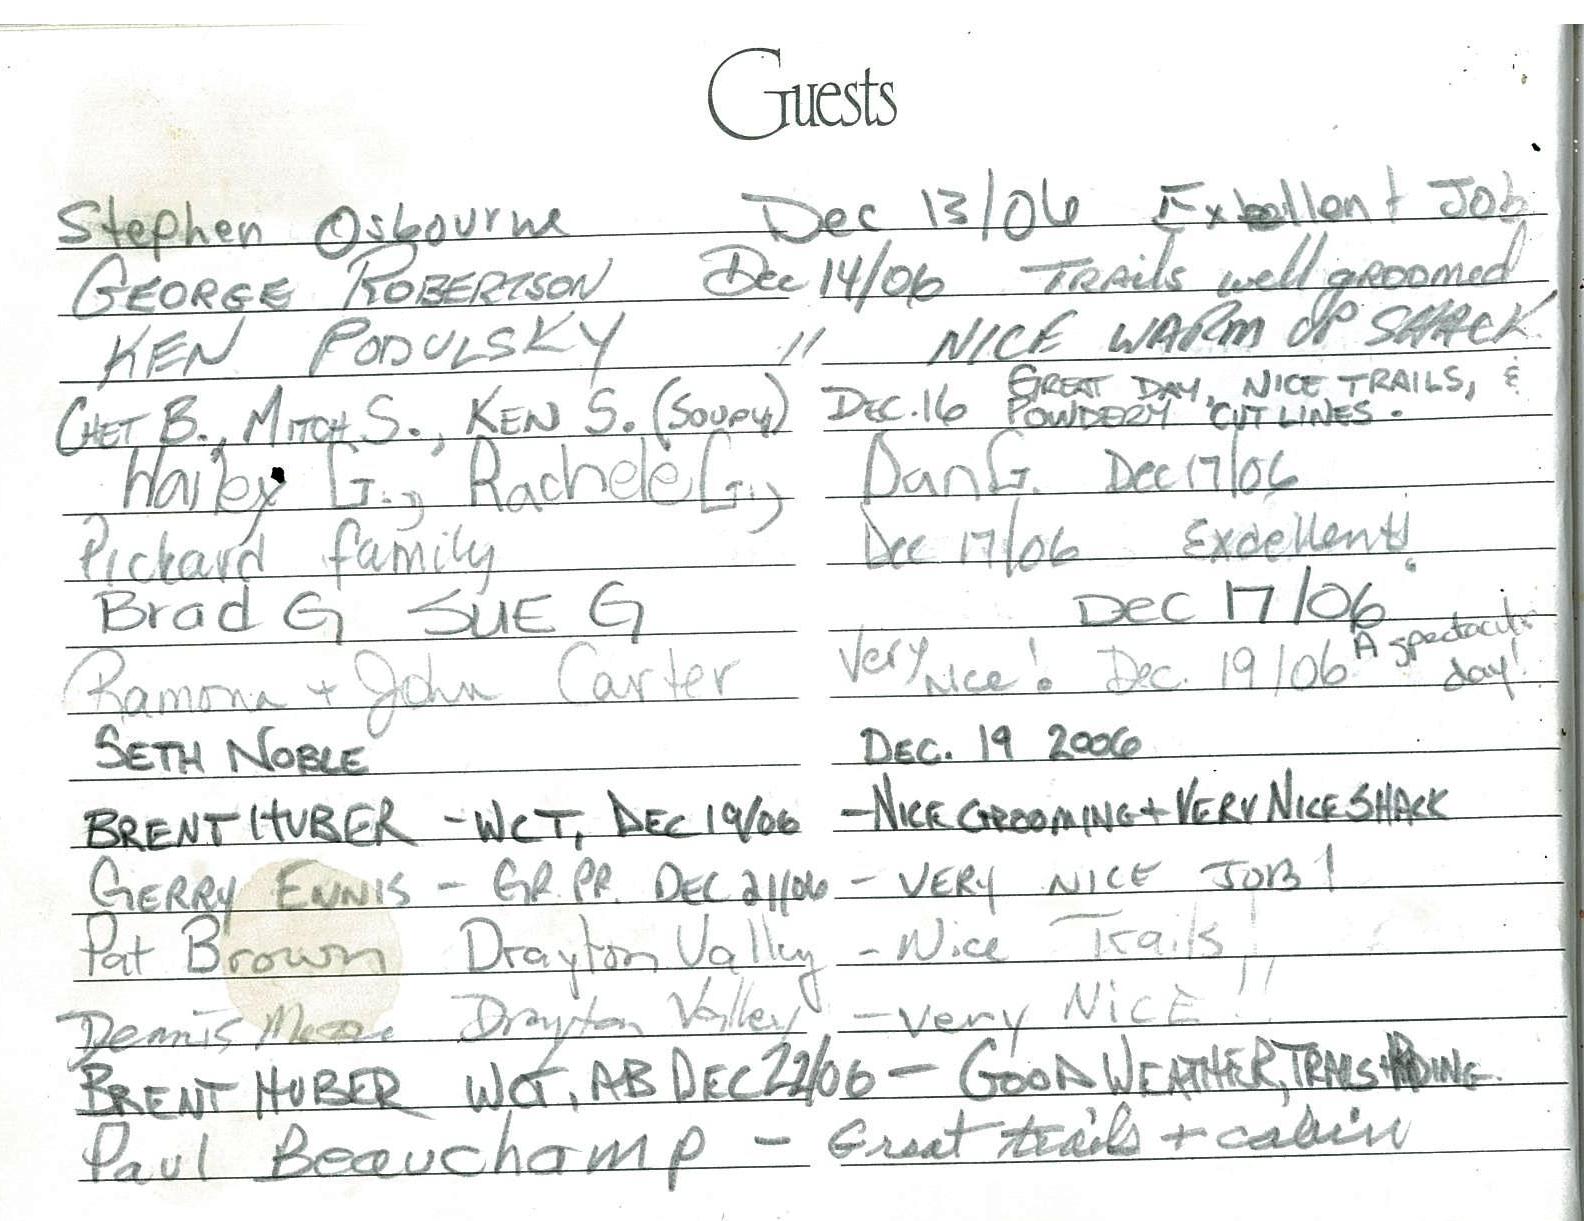 Guests
Stephen Osbourne Dec 13/06 Excellent Job
GEORGE ROBERTSON Dec 14/06 TRAILS well groomed
KEN PODULSKY " NICE WARM UP SHACK
CHET B., MITCH S., KEN S. (SOUPY) DEC.16 GREAT DAY, NICE TRAILS, &
POWDERY CUTLINES.
Hailey G., Rachele G., Dan G. Dec 17/06
Pickard family Dec 17/06 Excellent!
Brad G SUE G Dec 17/06
Ramona + John Carter Very Nice! Dec. 19/06 A spectacular
day!
SETH NOBLE DEC. 19 2006
BRENT HUBER - WCT, DEC 19/06 - NICE GROOMING + VERY NICE SHACK
GERRY ENNIS - GR. PR. DEC 21/06 - VERY NICE JOB!
Pat Brown Drayton Valley - Nice Trails!
Dennis Drayton Valley - Very NICE!!
BRENT HUBER WCT, AB DEC 22/06 - GOOD WEATHER, TRAILS + RIDING.
Paul Beauchamp - Great trails + cabin